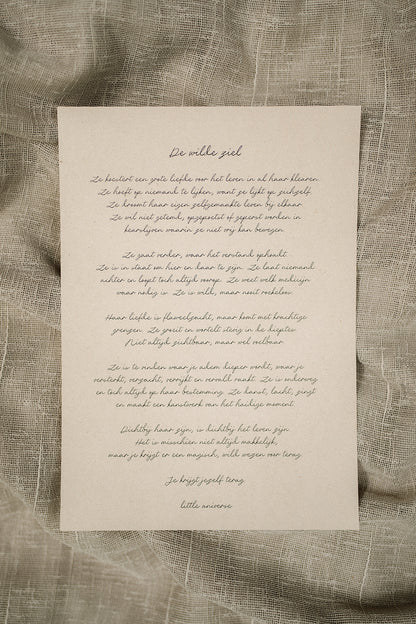 De wilde ziel
Ze koestert een grote liefde voor het leven in al haar kleuren.
Ze hoeft op niemand te lijken, want ze lijkt op zichzelf.
Ze kroont haar eigen zelfgemaakte leven bij elkaar.
Ze wil niet getemd, opgepoetst of geperst worden in
keurslijven waarin ze niet vrij kan bewegen.
Ze gaat verder, waar het verstand ophoudt.
Ze is in staat om hier en daar te zijn. Ze laat niemand
achter en loopt toch altijd voorop. Ze weet welk medicijn
waar nodig is. Ze is wild, maar nooit roekeloos.
Haar liefde is fluweelzacht, maar komt met krachtige
grenzen. Ze groeit en wortelt stevig in de dieptes.
Niet altijd zichtbaar, maar wel voelbaar.
Ze is te vinden waar je adem dieper wordt, waar je
versterkt, verzacht, verrijkt en verwild raakt. Ze is onderweg
en toch altijd op haar bestemming. Ze danst, lacht, zingt
en maakt een kunstwerk van het huidige moment.
Dichtbij haar zijn, is dichtbij het leven zijn.
Het is misschien niet altijd makkelijk,
maar je krijgt er een magisch, wild wezen voor terug.
Je krijgt jezelf terug.
little universe